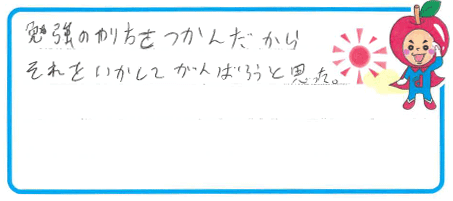 勉強のやり方をつかんだから
それをいかしてがんばろうと思った。